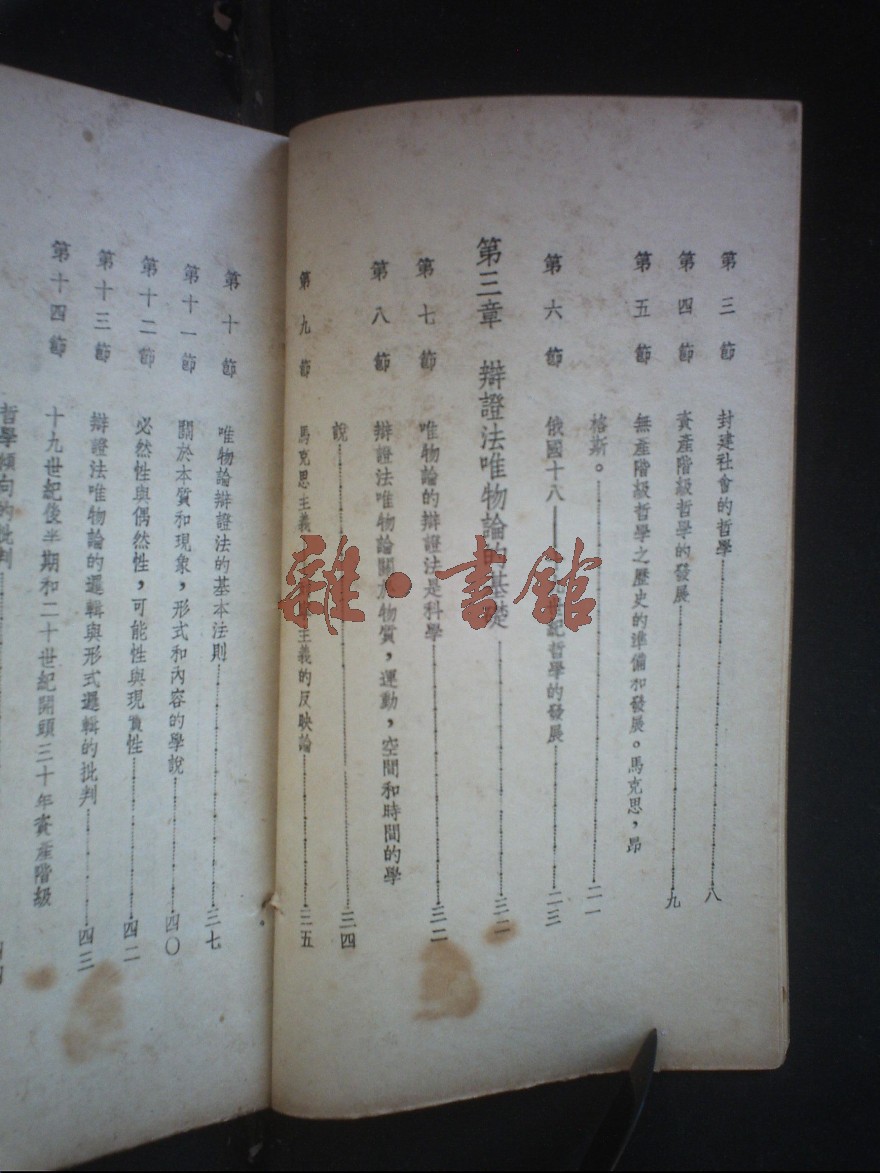 第三節 封建社會的哲學 八
第四節 資產階級哲學的發展 九
第五節 無產階級哲學之歷史的準備和發展。馬克思,昂
格斯。 二一
第六節 俄國十八——世紀哲學的發展 二三
第三章 辯證法唯物論的基礎 三二
第七節 唯物論的辯證法是科學 三二
第八節 辯證法唯物論關於物質,運動,空間和時間的學
說 三四
第九節 馬克思主義主義的反映論 三五
第十節 唯物論辯證法的基本法則 三七
第十一節 關於本質和現象,形式和內容的學說 四〇
第十二節 必然性與偶然性,可能性與現實性 四二
第十三節 辯證法唯物論的邏輯與形式邏輯的批判 四三
第十四節 十九世紀後半期和二十世紀開頭三十年資產階級
哲學傾向的批判
雜·書館